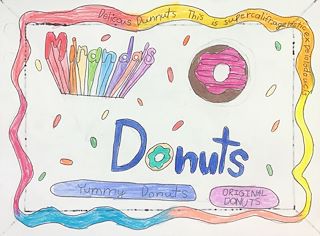 Delicous Dunnuts This is supercalifragilistic
Miranda's
Donuts
Yummy Donuts
ORIGINAL
DONUTS